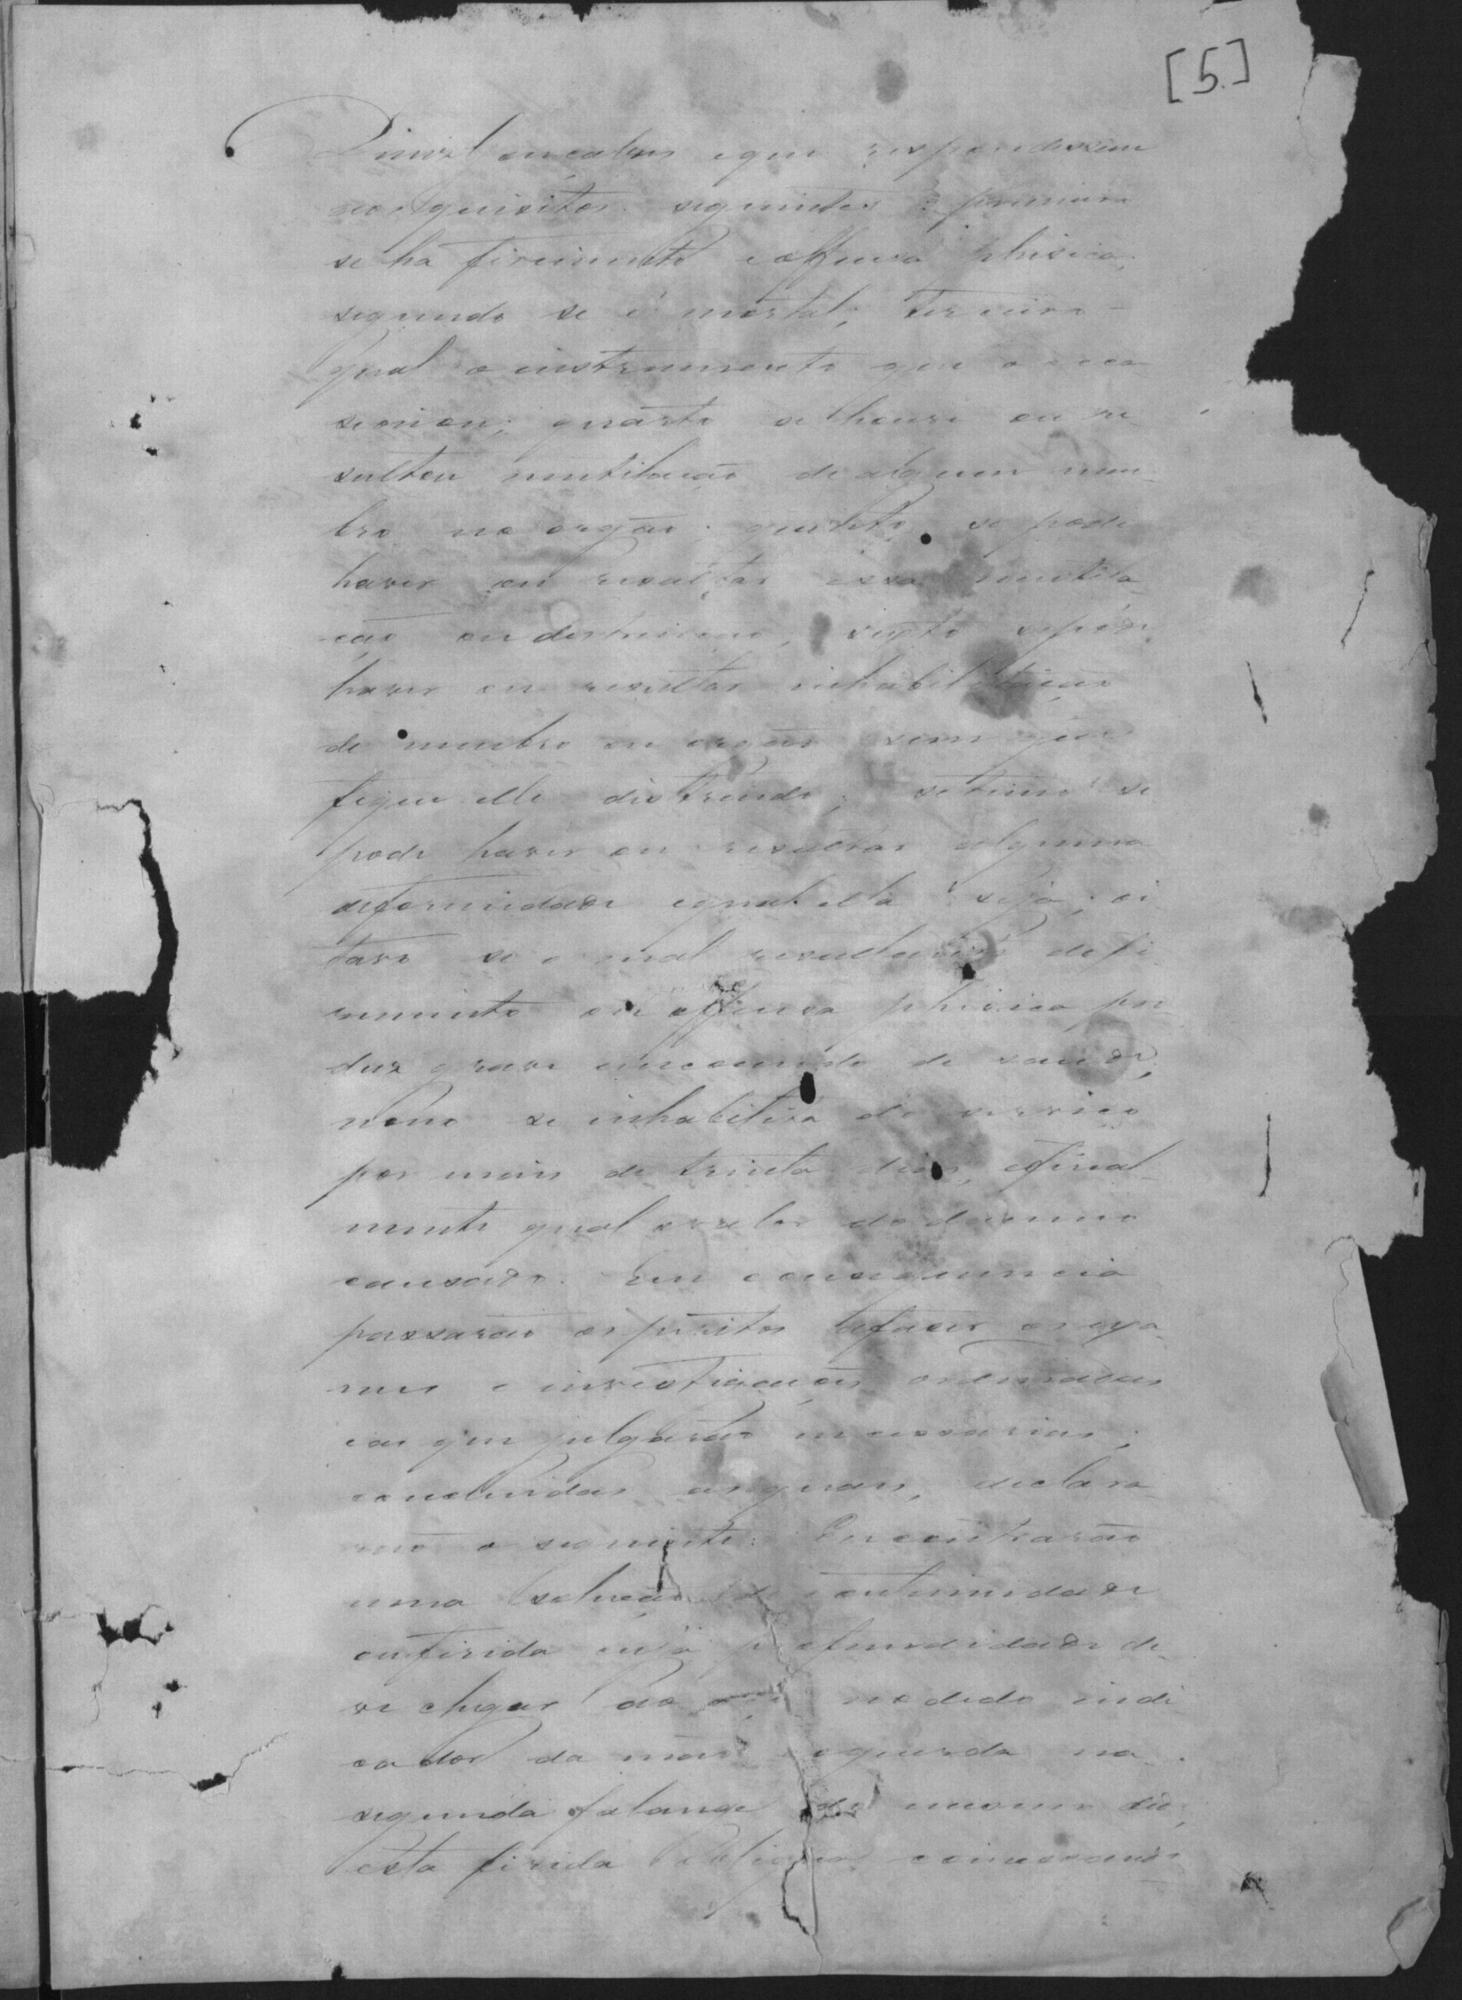 [5.]
Dinizl ençalves eque respondessem
aos quisitos seguintes: primeiro
se ha firimento e offensa phisica;
segundo se é mortal; terceiro
qual o instrumento que o occa
sionou; quarto se houve ou re
sultou mutilação de algum mem
bro no orgão; quinto se pode
haver ou resultar essa mutila
ção ou destruição; sexto se pode
haver ou resultar inhabilitação
de membro ou orgão sem que
fique elle distruido; setimo se
pode haver ou resultar alguma
deformidade equal ella seja; oi
tavo se o mal resultante do fi
rimento ou offensa phisica pro
duz grave incomodo de saude;
nono se inhabilita do serviço
por mais de trinta dias, efinal
mente qual ovalor do damno
causado. Em consequencia
passarão os peritos afazer os exa
mes e investigações ordenadas
eas que julgarão necessarias;
concluidas asquaes, declara
rão o seguinte: Encontrarão
uma solução de continuidade
ouferida cuja profundidade de
ve chegar ao no dedo indi
cador da mão esquerda na
segunda falange do mesmo dedo,
esta firida começando